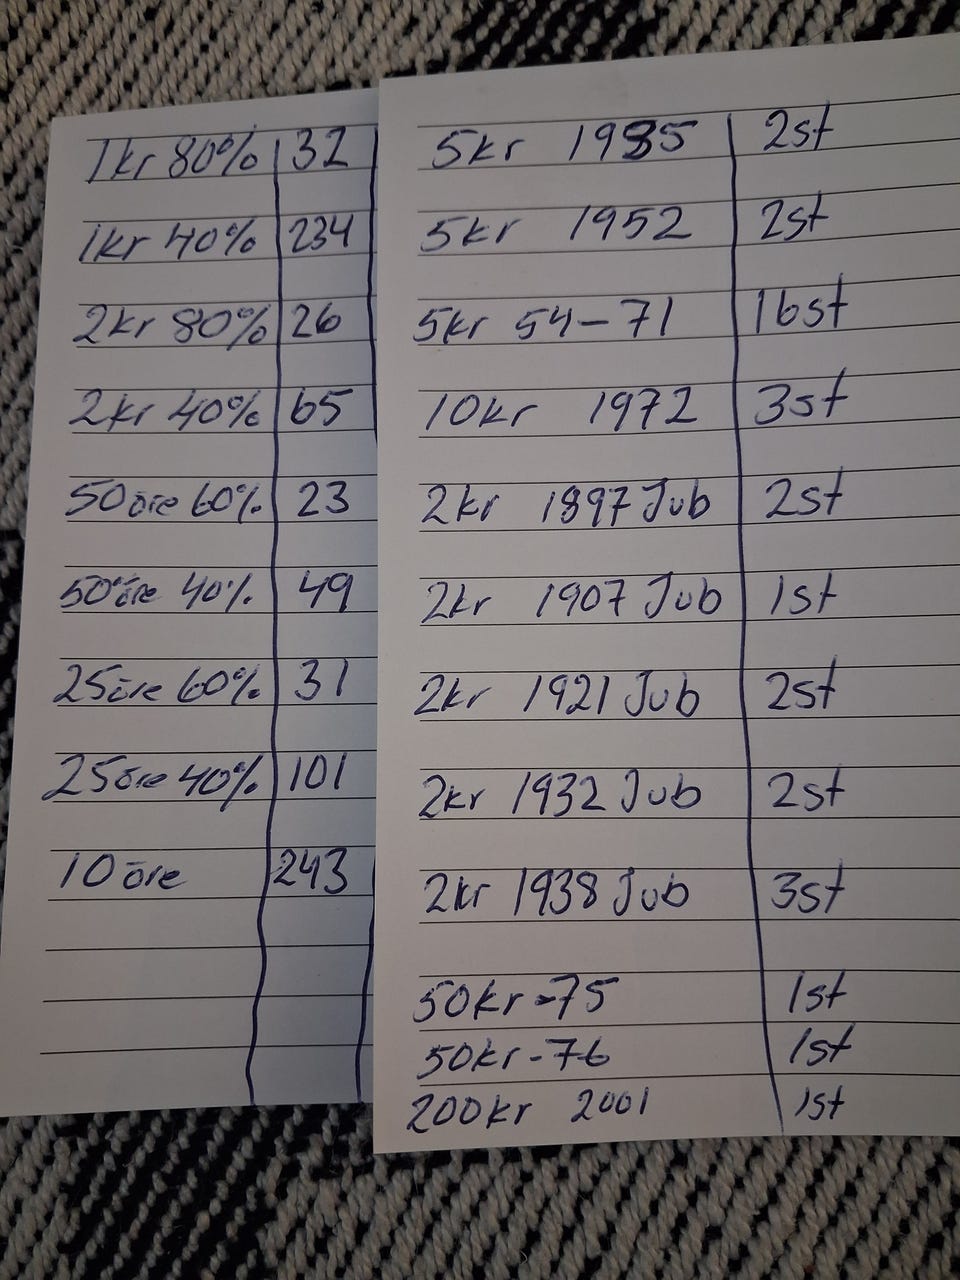 1kr 80% 32
1kr 40% 234
2kr 80% 26
2kr 40% 65
50 öre 60% 23
50 öre 40% 49
25 öre 60% 31
25 öre 40% 101
10 öre 243
5kr 1935 2st
5kr 1952 2st
5kr 54-71 16st
10kr 1972 3st
2kr 1897 Jub 2st
2kr 1907 Jub 1st
2kr 1921 Jub 2st
2kr 1932 Jub 2st
2kr 1938 Jub 3st
50kr -75 1st
50kr -76 1st
200kr 2001 1st